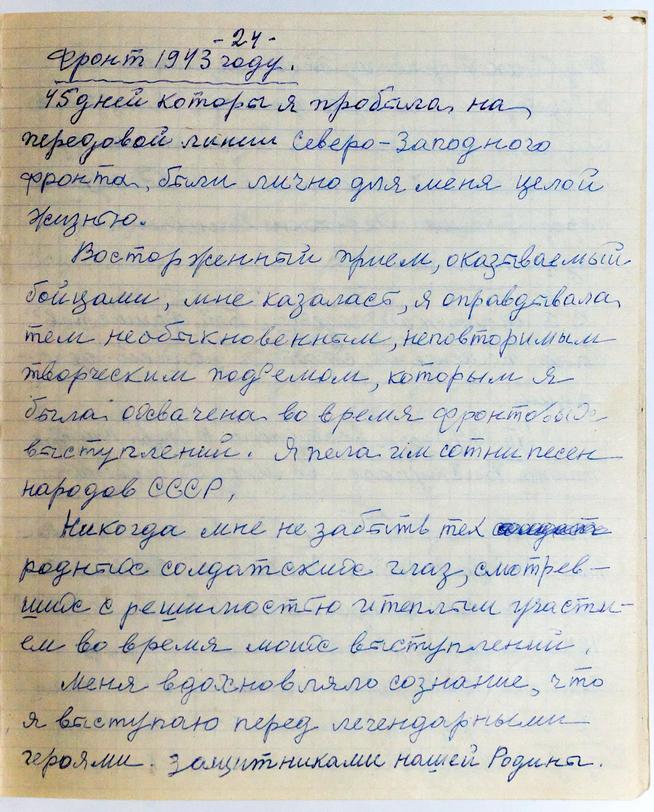 - 24 -
Фронт 1943 году.
45 дней которы я пробыла на
передовой линии Северо-Западного
фронта, были лично для меня целой
жизнью.
Восторженный прием, оказываемый
бойцами, мне казалась, я оправдывала
тем необыкновенным, неповторимым
творческим подъемом, которым я
была охвачена во время фронтовых
выступлений. Я пела им сотни песен
народов СССР.
Никогда мне не забыть тех
родных солдатских глаз, смотрев-
ших с решимостью и теплым участи-
ем во время моих выступлений.
Меня вдохновляло сознание, что
я выступаю перед легендарными
героями. Защитниками нашей Родины.